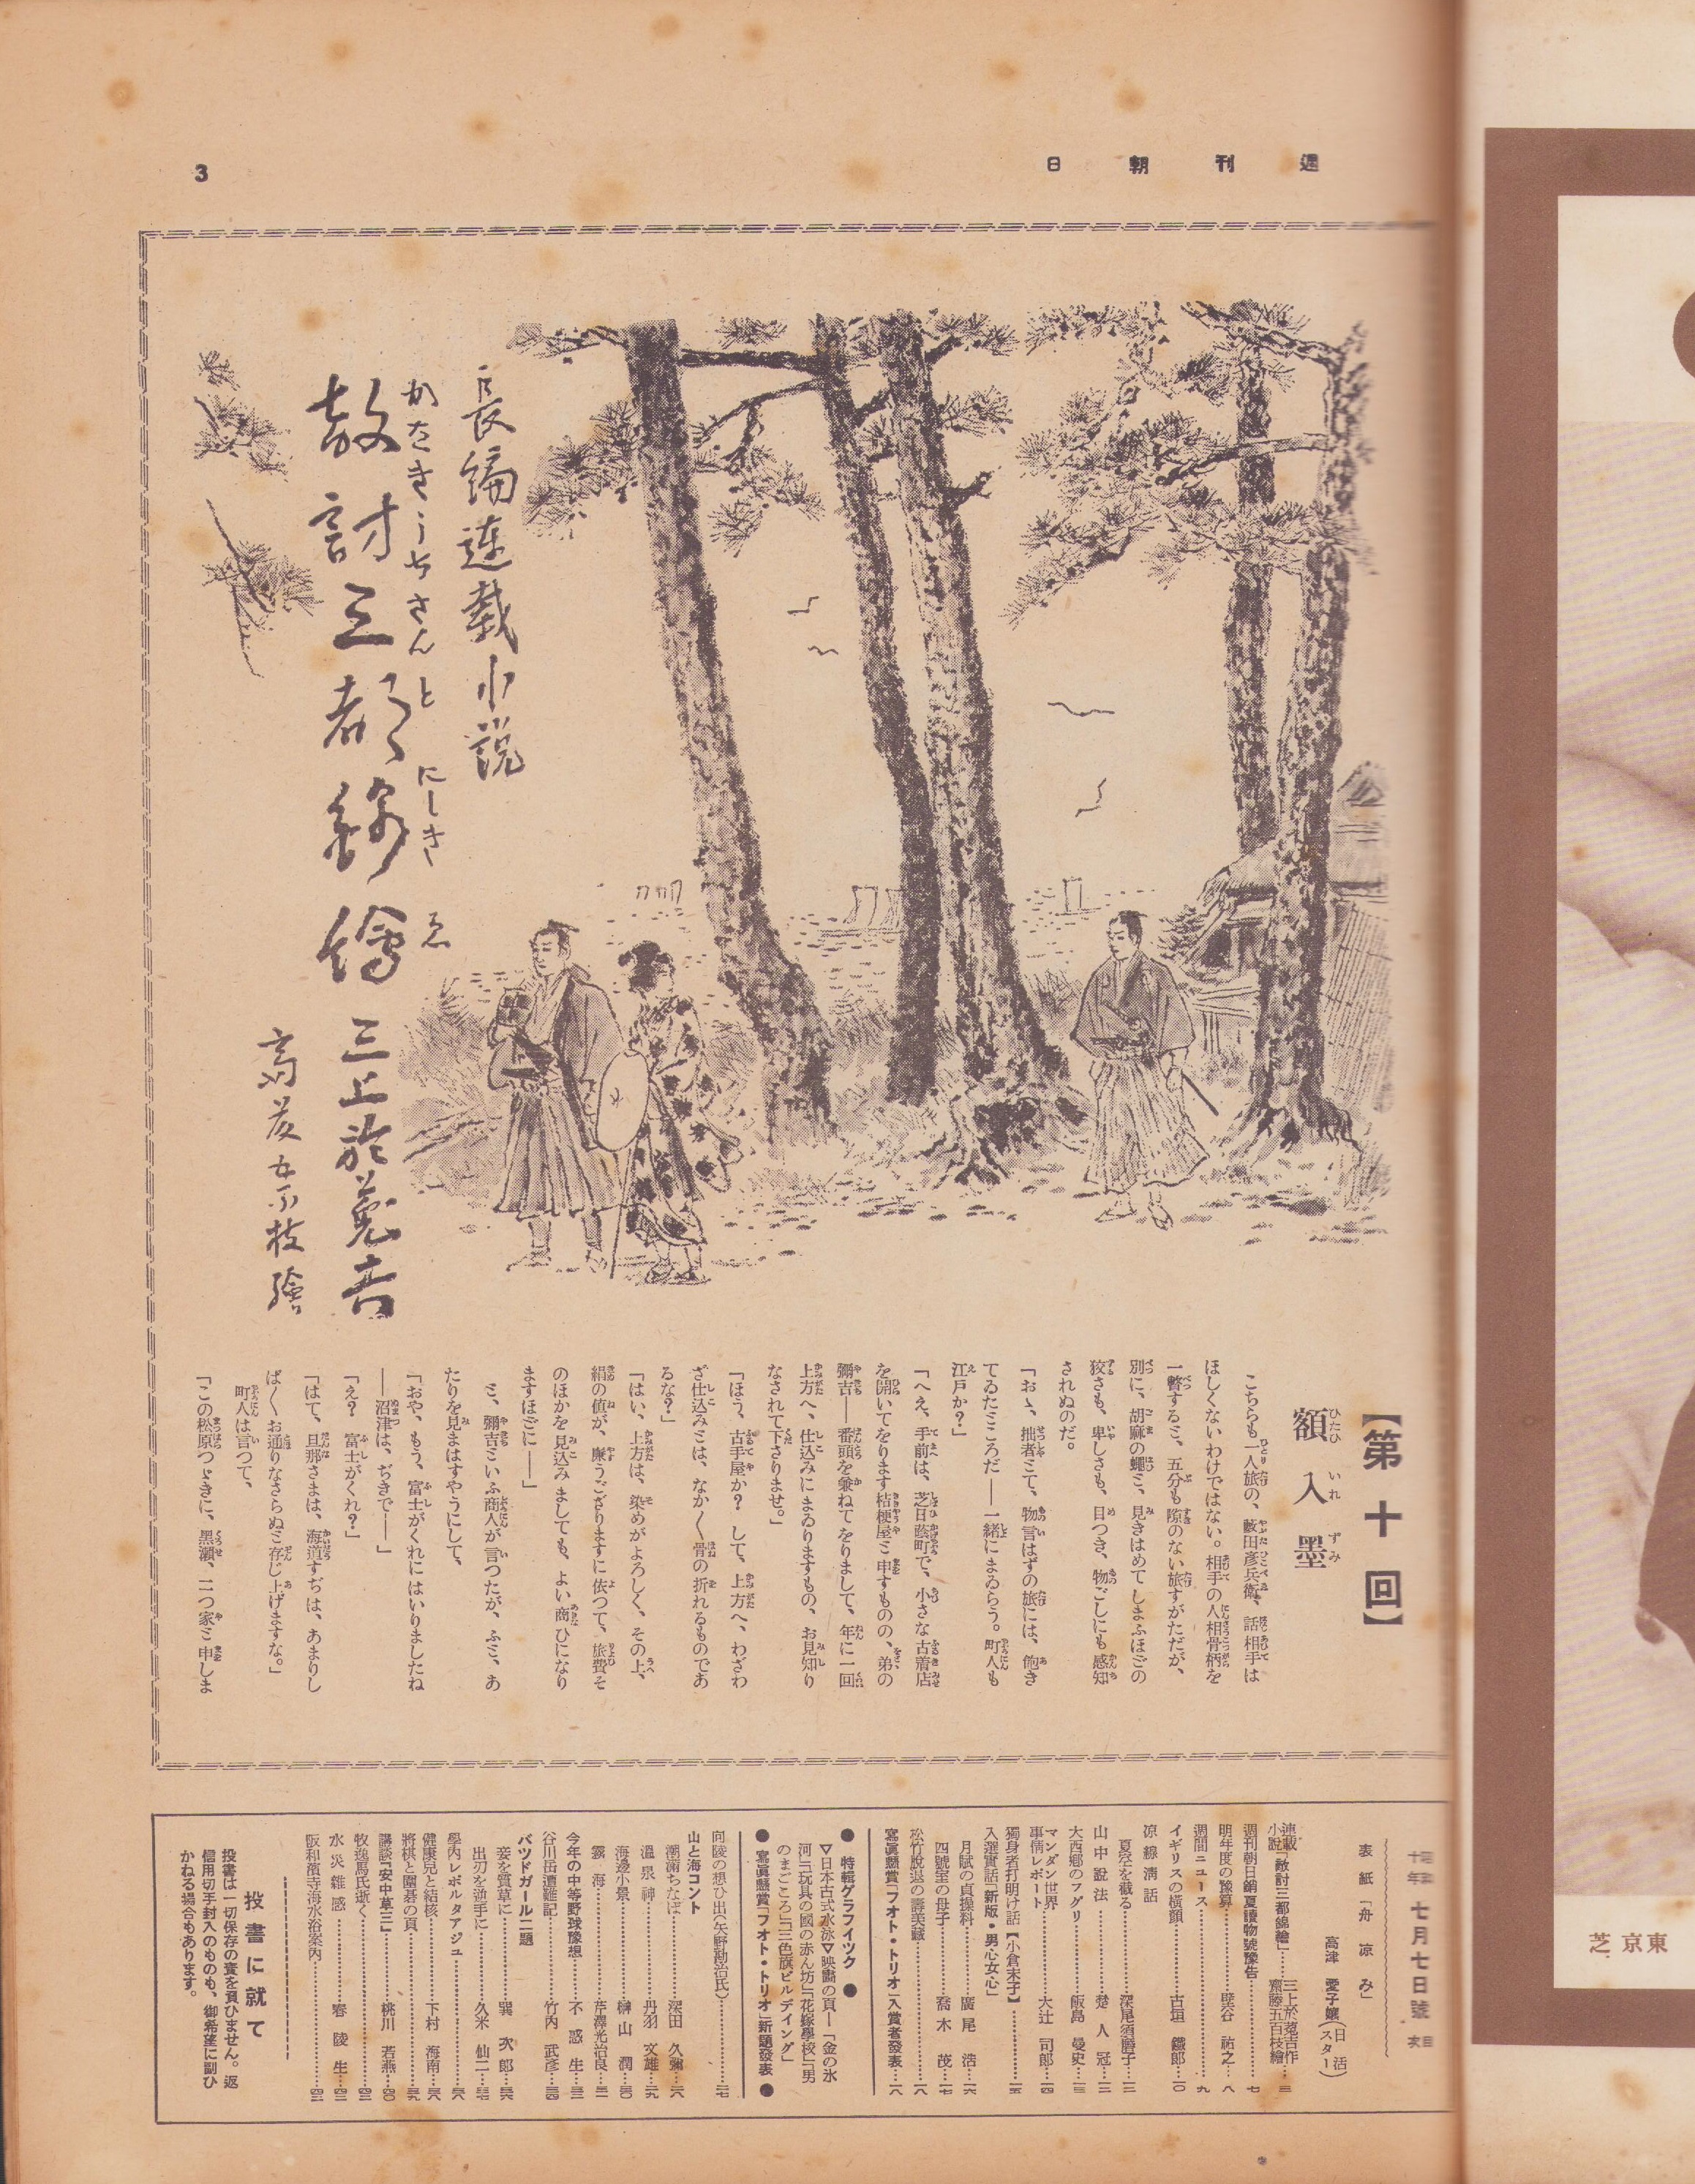 週刊朝日
3
長編連載小説
かたきうちさんとにしきゑ
敵討三都錦繪
三上於菟吉
齋藤五百枝繪
【第十回】
額入墨
ひたひいれずみ
こちらも一人旅の、藪田彦兵衛、話相手は
ほしくないわけではない。相手の人相骨柄を
一瞥すると、五分も隙のない旅すがただが、
別に、胡麻の蠅と、見きはめてしまふほどの
狡さも、卑しさも、目つき、物ごしにも感知
されぬのだ。
「おゝ、拙者とて、物言はずの旅には、飽き
てゐたところだ――一緒にまゐらう。町人も
江戸か?」
「へえ、手前は、芝日蔭町で、小さな古着店
を開いてをります桔梗屋と申すものの、弟の
彌吉――番頭を兼ねてをりまして、年に一回
上方へ、仕込みにまゐりますもの、お見知り
なされて下さりませ。」
「ほう、古手屋か? して、上方へ、わざわ
ざ仕込みとは、なか〱骨の折れるものであ
るな?」
「はい、上方は、染めがよろしく、その上、
絹の値が、廉うござりますに依つて、旅費そ
のほかを見込みましても、よい商ひになり
ますほどに――」
と、彌吉といふ商人が言つたが、ふと、あ
たりを見まはすやうにして、
「おや、もう、富士がくれにはいりましたね
――沼津は、ぢきで――」
「え? 富士がくれ?」
「はて、旦那さまは、海道すぢは、あまりし
ば〱お通りなさらぬと存じ上げますな。」
町人は言つて、
「この松原つゞきに、黒瀬、二つ家と申しま
昭和十年 七月七日號 目次
表紙「舟涼み」
高津愛子孃(日活スター)
連載小說「敵討三都錦繪」 三上於菟吉作 齋藤五百枝繪…三
週刊朝日銷夏讀物號豫告…七
明年度の豫算…壁谷祐之…八
週間ニュース…九
イギリスの橫顔…古垣鐵郎…一〇
凉線淸話
夏空を截る…深尾須磨子…一二
山中說法…楚人冠…一二
大西郷のフグリ…飯島曼史…一三
マンダン世界事情レポート…大辻司郎…一四
獨身者打明け話【小倉末子】…一五
入選實話「新版・男心女心」
月賦の貞操料…廣尾浩…一六
四號室の母子…喬木茂…一七
松竹脫退の壽美藏…一八
寫眞懸賞「フオト・トリオ」入賞者發表…一八
● 特輯グラフイツク ●
▽日本古式水泳▽映畫の頁―「金の氷
河」「玩具の國の赤ん坊」「花嫁學校」「男
のまごころ」「三色旗ビルデイング」
● 寫眞懸賞「フオト・トリオ」新題發表 ●
向陵の想ひ出(矢野勘治氏)…二七
山と海コント
潮滿ちなば…深田久彌…二八
溫泉神…丹羽文雄…二九
海邊小景…榊山潤…三〇
霧海…芹澤光治良…三一
今年の中等野球豫想…不惑生…三二
谷川岳遭難記…竹內武彥…三四
バツドガール二題
妾を質草に…巽次郎…三六
出刃を逆手に…久米仙二…三七
學內レポルタアジユ…三八
健康兒と結核…下村海南…三八
將棋と圍碁の頁…三九
講談「安中草三」…桃川若燕…四〇
牧逸馬氏逝く…四二
水災雜感…春陵生…四二
阪和濱寺海水浴案內…四二
投書に就て
投書は一切保存の責を負ひません。返
信用切手封入のものも、御希望に副ひ
かねる場合もあります。
東京 芝